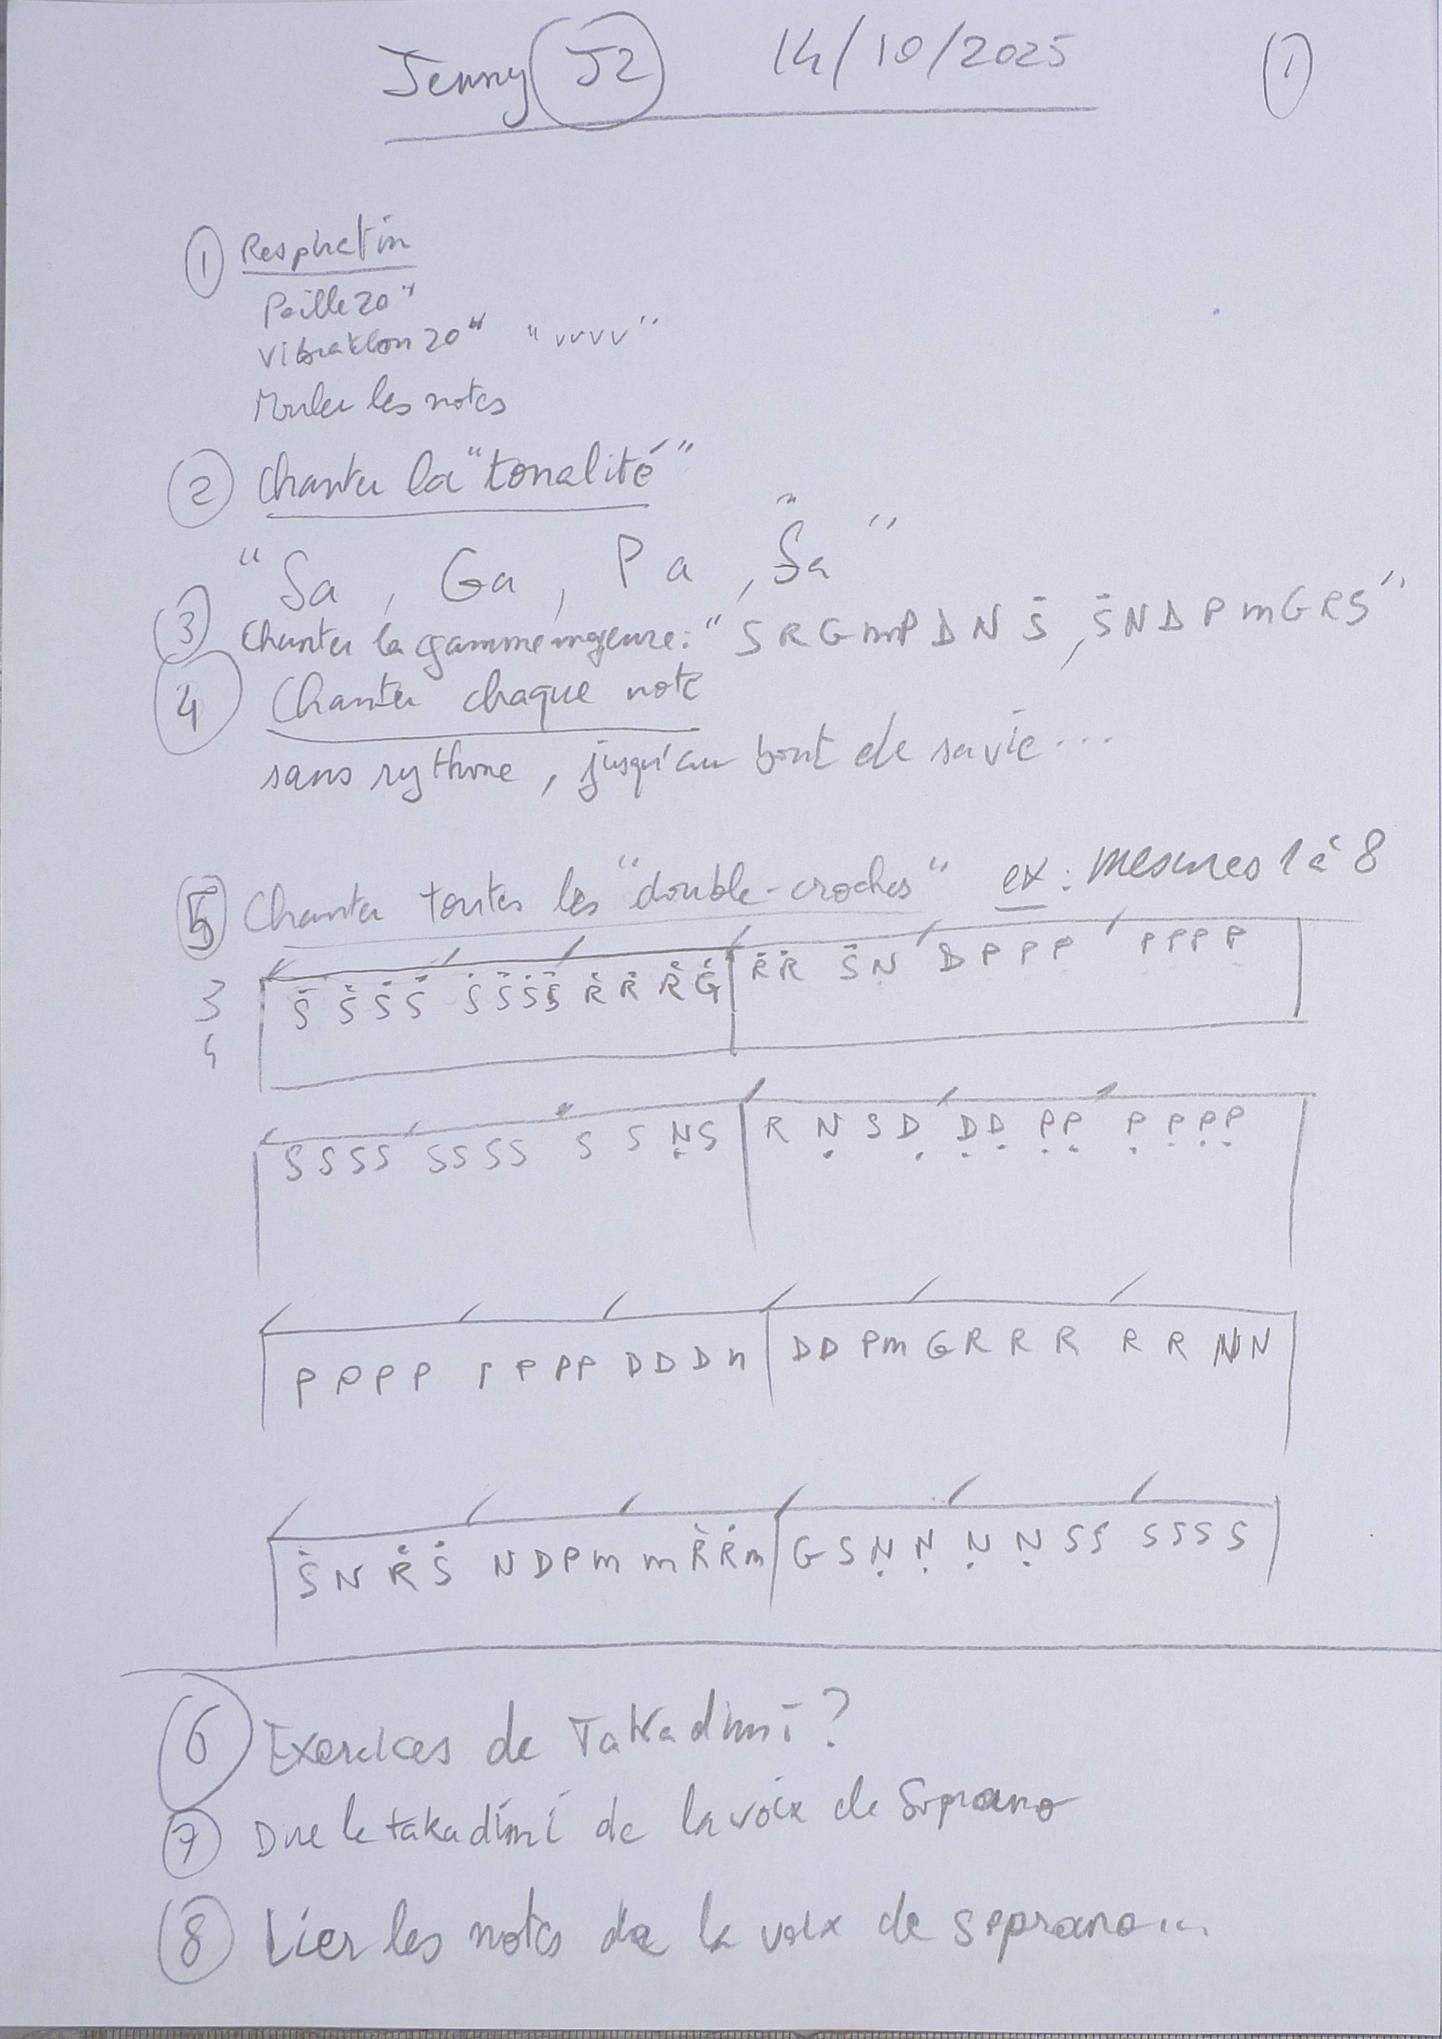 Jenny J2 14/10/2025 1
1 Respiration
Paille 20"
Vibration 20" "vvvv"
Rouler les notes
2 Chanter la "tonalité"
"Sa, Ga, Pa, Ṡa"
3 Chanter la gamme majeure: "S R G m P D N Ṡ, Ṡ N D P m G R S"
4 Chanter chaque note
sans rythme, jusqu'au bout de sa vie...
5 Chanter toutes les "double-croches" ex: mesures 1 à 8
3 Ṡ Ṡ Ṡ Ṡ Ṡ Ṡ Ṡ Ṡ Ṙ Ṙ Ṙ Ġ | Ṙ Ṙ Ṡ N D P P P P P P P
4
S S S S S S S S S S Ṇ S | R Ṇ S Ḍ Ḍ Ḍ P̣ P̣ P̣ P̣ P̣ P̣
P P P P P P P P D D D n | D D P m G R R R R R N N
Ṡ N Ṙ Ṡ N D P m m Ṙ Ṙ m | G S Ṇ Ṇ Ṇ Ṇ S S S S S S
6 Exercices de Takadimi?
7 Dire le takadimi de la voix de Soprano
8 Lier les notes de la voix de soprano...